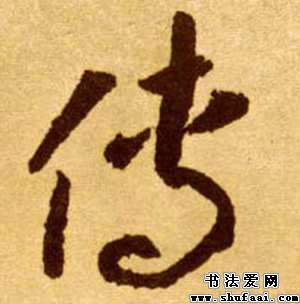 传
书法爱网
www.shufaai.com